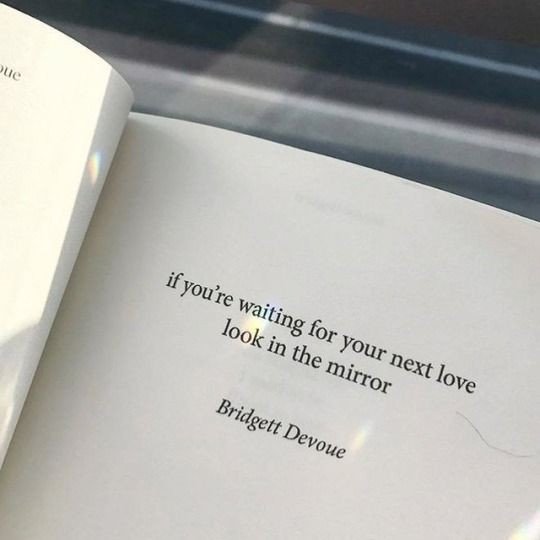 if you're waiting for your next love
look in the mirror
Bridgett Devoue